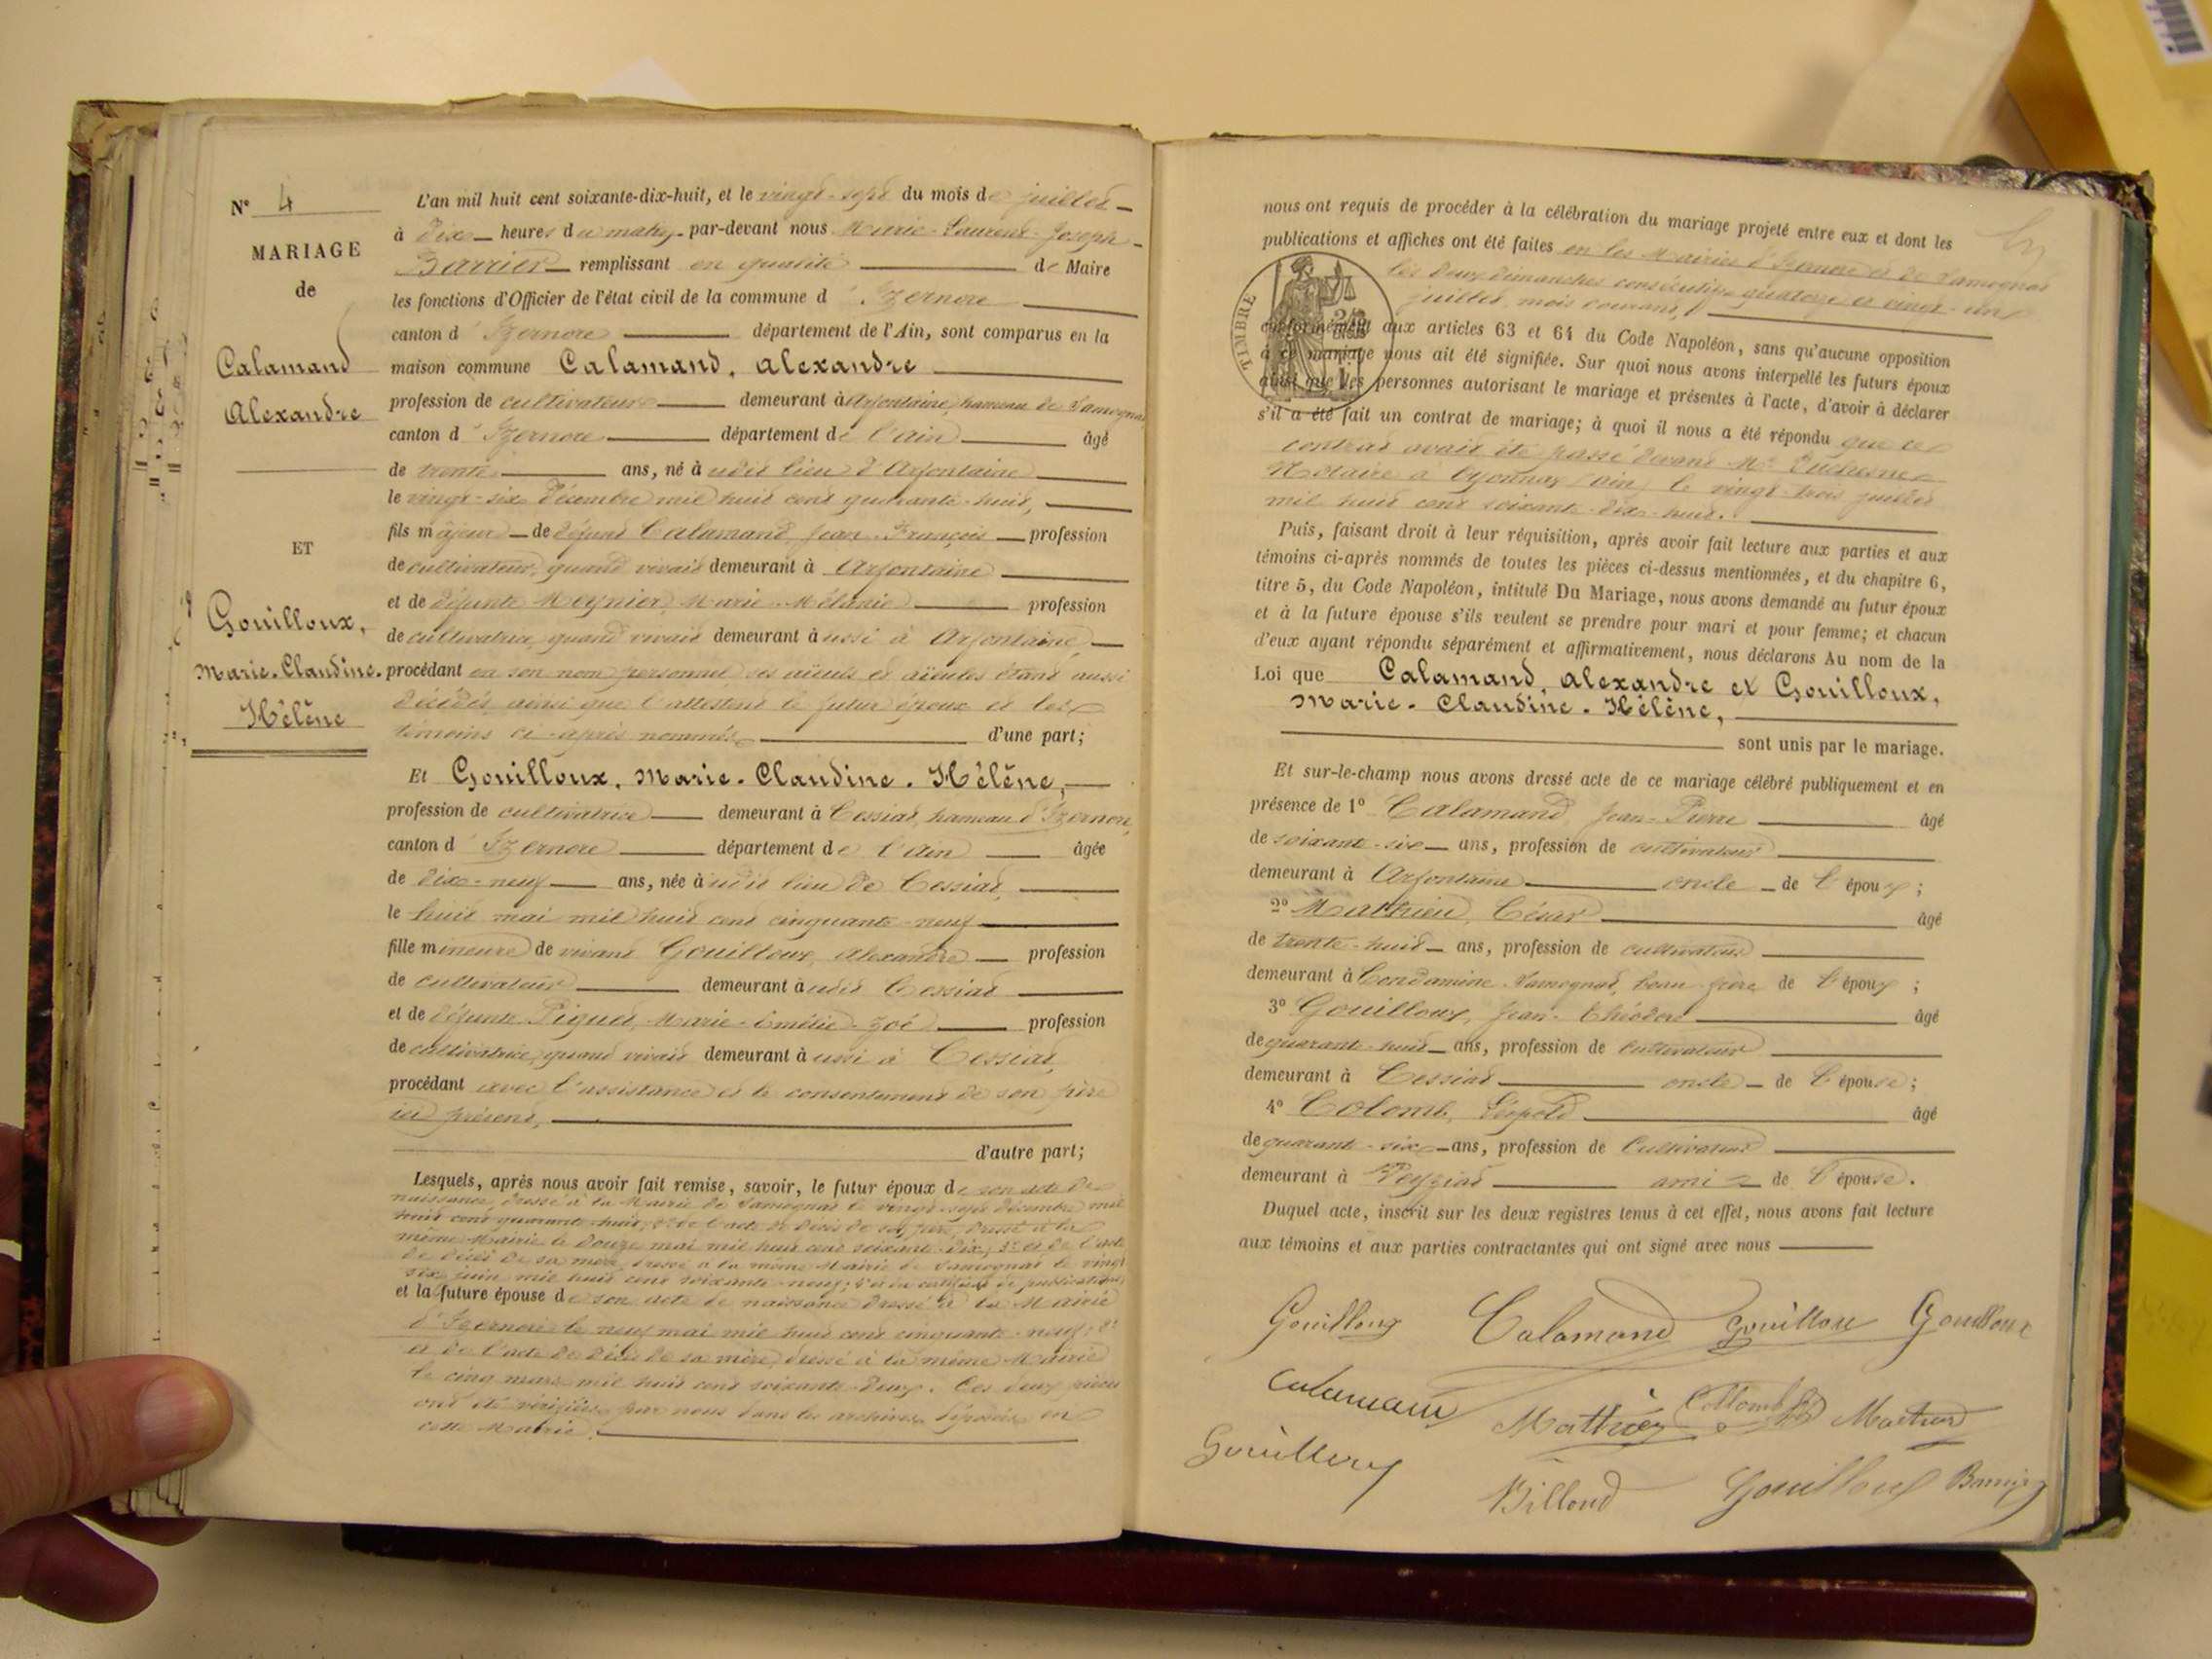 N° 4
MARIAGE
de
Calamand
Alexandre
ET
Gouilloux,
Marie-Claudine.
Hélène
L'an mil huit cent soixante-dix-huit, et le vingt-sept du mois de juillet
à dix heures du matin par-devant nous Marie-Laurent-Joseph
remplissant en qualité de Maire
les fonctions d'Officier de l'état civil de la commune d'Izernore
canton d'Izernore département de l'Ain, sont comparus en la
maison commune Calamand, Alexandre
profession de cultivateur demeurant à Arfontaine, hameau de Samognat
canton d'Izernore département de l'Ain âgé
de trente ans, né à udit lieu d'Arfontaine
le vingt-six décembre mil huit cent quarante-huit,
fils majeur de défunt Calamand, Jean-François profession
de cultivateur, quand vivait demeurant à Arfontaine
et de défunte Meynier, Marie-Mélanie profession
de cultivatrice, quand vivait demeurant aussi à Arfontaine,
procédant en son nom personnel ses aïeuls et aïeules étant aussi
décédés ainsi que l'attestent le futur époux et les
témoins ci-après nommés, d'une part;
Et Gouilloux, Marie-Claudine-Hélène,
profession de cultivatrice demeurant à Cessiat, hameau d'Izernore,
canton d'Izernore département de l'Ain âgée
de dix-neuf ans, née à udit lieu de Cessiat,
le huit mai mil huit cent cinquante-neuf
fille mineure de vivant Gouilloux, Alexandre profession
de cultivateur demeurant à udit Cessiat
et de défunte Piquet, Marie-Emélie-Zoé profession
de cultivatrice, quand vivait demeurant aussi à Cessiat,
procédant avec l'assistance et le consentement de son père
ici présent,
d'autre part;
Lesquels, après nous avoir fait remise, savoir, le futur époux de son acte de
naissance, dressé à la Mairie de Samognat le vingt-sept décembre mil
huit cent quarante-huit; 2° de l'acte de décès de son père, dressé à la
même Mairie le douze mai mil huit cent soixante-dix; 3° et de l'acte
de décès de sa mère, dressé à la même Mairie de Samognat le vingt
six juin mil huit cent soixante-neuf; 4° et du certificat de publications
et la future épouse de son acte de naissance dressé à la Mairie
d'Izernore le neuf mai mil huit cent cinquante-neuf; 2°
et de l'acte de décès de sa mère, dressé à la même Mairie
le cinq mars mil huit cent soixante-deux. Ces deux pièces
ont été vérifiées par nous dans les archives déposées en
cette Mairie.
nous ont requis de procéder à la célébration du mariage projeté entre eux et dont les
publications et affiches ont été faites en les Mairies d'Izernore et de Samognat
les deux dimanches consécutifs quatorze et vingt-un
juillet, mois courant,
TIMBRE
conformément aux articles 63 et 64 du Code Napoléon, sans qu'aucune opposition
à ce mariage nous ait été signifiée. Sur quoi nous avons interpellé les futurs époux
ainsi que les personnes autorisant le mariage et présentes à l'acte, d'avoir à déclarer
s'il a été fait un contrat de mariage; à quoi il nous a été répondu que ce
contrat avait été passé devant Me Duchesne
Notaire à Oyonnax (Ain) le vingt-trois juillet
mil huit cent soixante-dix-huit.
Puis, faisant droit à leur réquisition, après avoir fait lecture aux parties et aux
témoins ci-après nommés de toutes les pièces ci-dessus mentionnées, et du chapitre 6,
titre 5, du Code Napoléon, intitulé Du Mariage, nous avons demandé au futur époux
et à la future épouse s'ils veulent se prendre pour mari et pour femme; et chacun
d'eux ayant répondu séparément et affirmativement, nous déclarons Au nom de la
Loi que Calamand, Alexandre et Gouilloux,
Marie-Claudine-Hélène,
sont unis par le mariage.
Et sur-le-champ nous avons dressé acte de ce mariage célébré publiquement et en
présence de 1° Calamand Jean-Pierre âgé
de soixante-six ans, profession de cultivateur
demeurant à Arfontaine oncle de l'époux;
2° Mathieu, César âgé
de trente-huit ans, profession de cultivateur
demeurant à Condamine Samognat, beau-frère de l'époux;
3° Gouilloux, Jean-Théodore âgé
de quarante-huit ans, profession de cultivateur
demeurant à Cessiat oncle de l'épouse;
4° Colomb, Léopold âgé
de quarante-six ans, profession de Cultivateur
demeurant à Veyziat ami de l'épouse.
Duquel acte, inscrit sur les deux registres tenus à cet effet, nous avons fait lecture
aux témoins et aux parties contractantes qui ont signé avec nous
Gouilloux Calamand Gouilloux Gouilloux
Calamand Collomb
Gouilloux Billoud Gouilloux